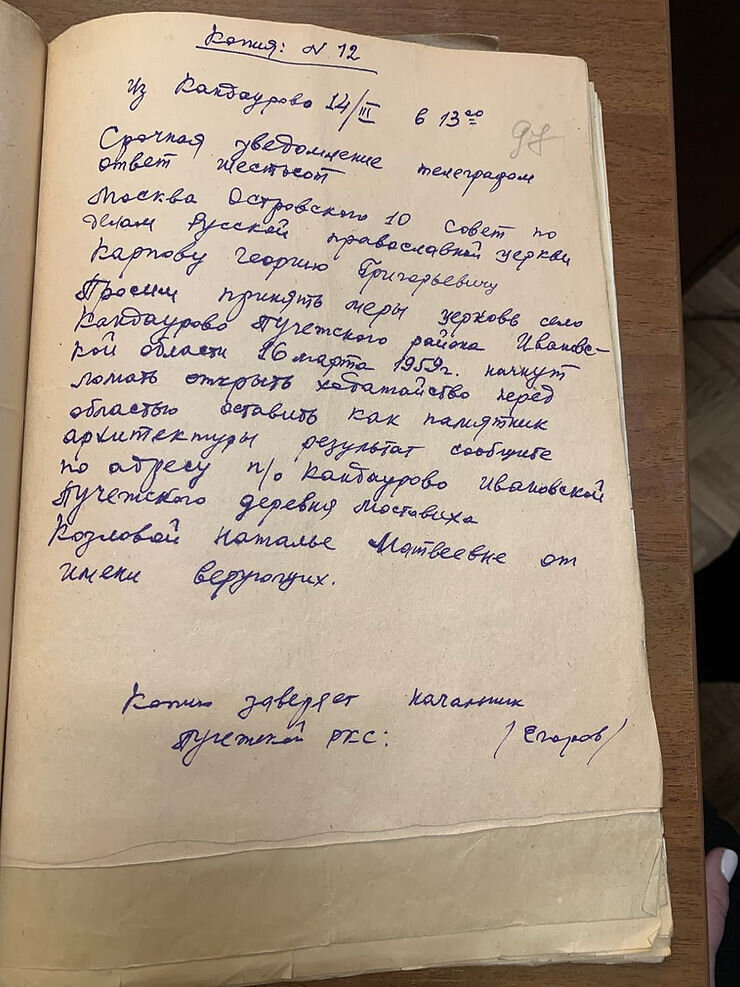 Копия: N 12
из Кандаурово 14/III в 13 00
97
Срочная уведомление телеграфом
ответ шестьсот
Москва Островского 10 Совет по
делам Русской православной церкви
Карпову Георгию Григорьевичу
Просим принять меры церковь село
Кандаурово Пучежского района Ивановс-
кой области 16 марта 1959г. начнут
ломать открыть ходатайство перед
областью оставить как памятник
архитектуры результат сообщите
по адресу п/о Кандаурово Ивановской
Пучежского деревня Моставиха
Козловой Наталье Матвеевне от
имени верующих.
Копию заверяет начальник
Пучежской РКС: /Егоров/